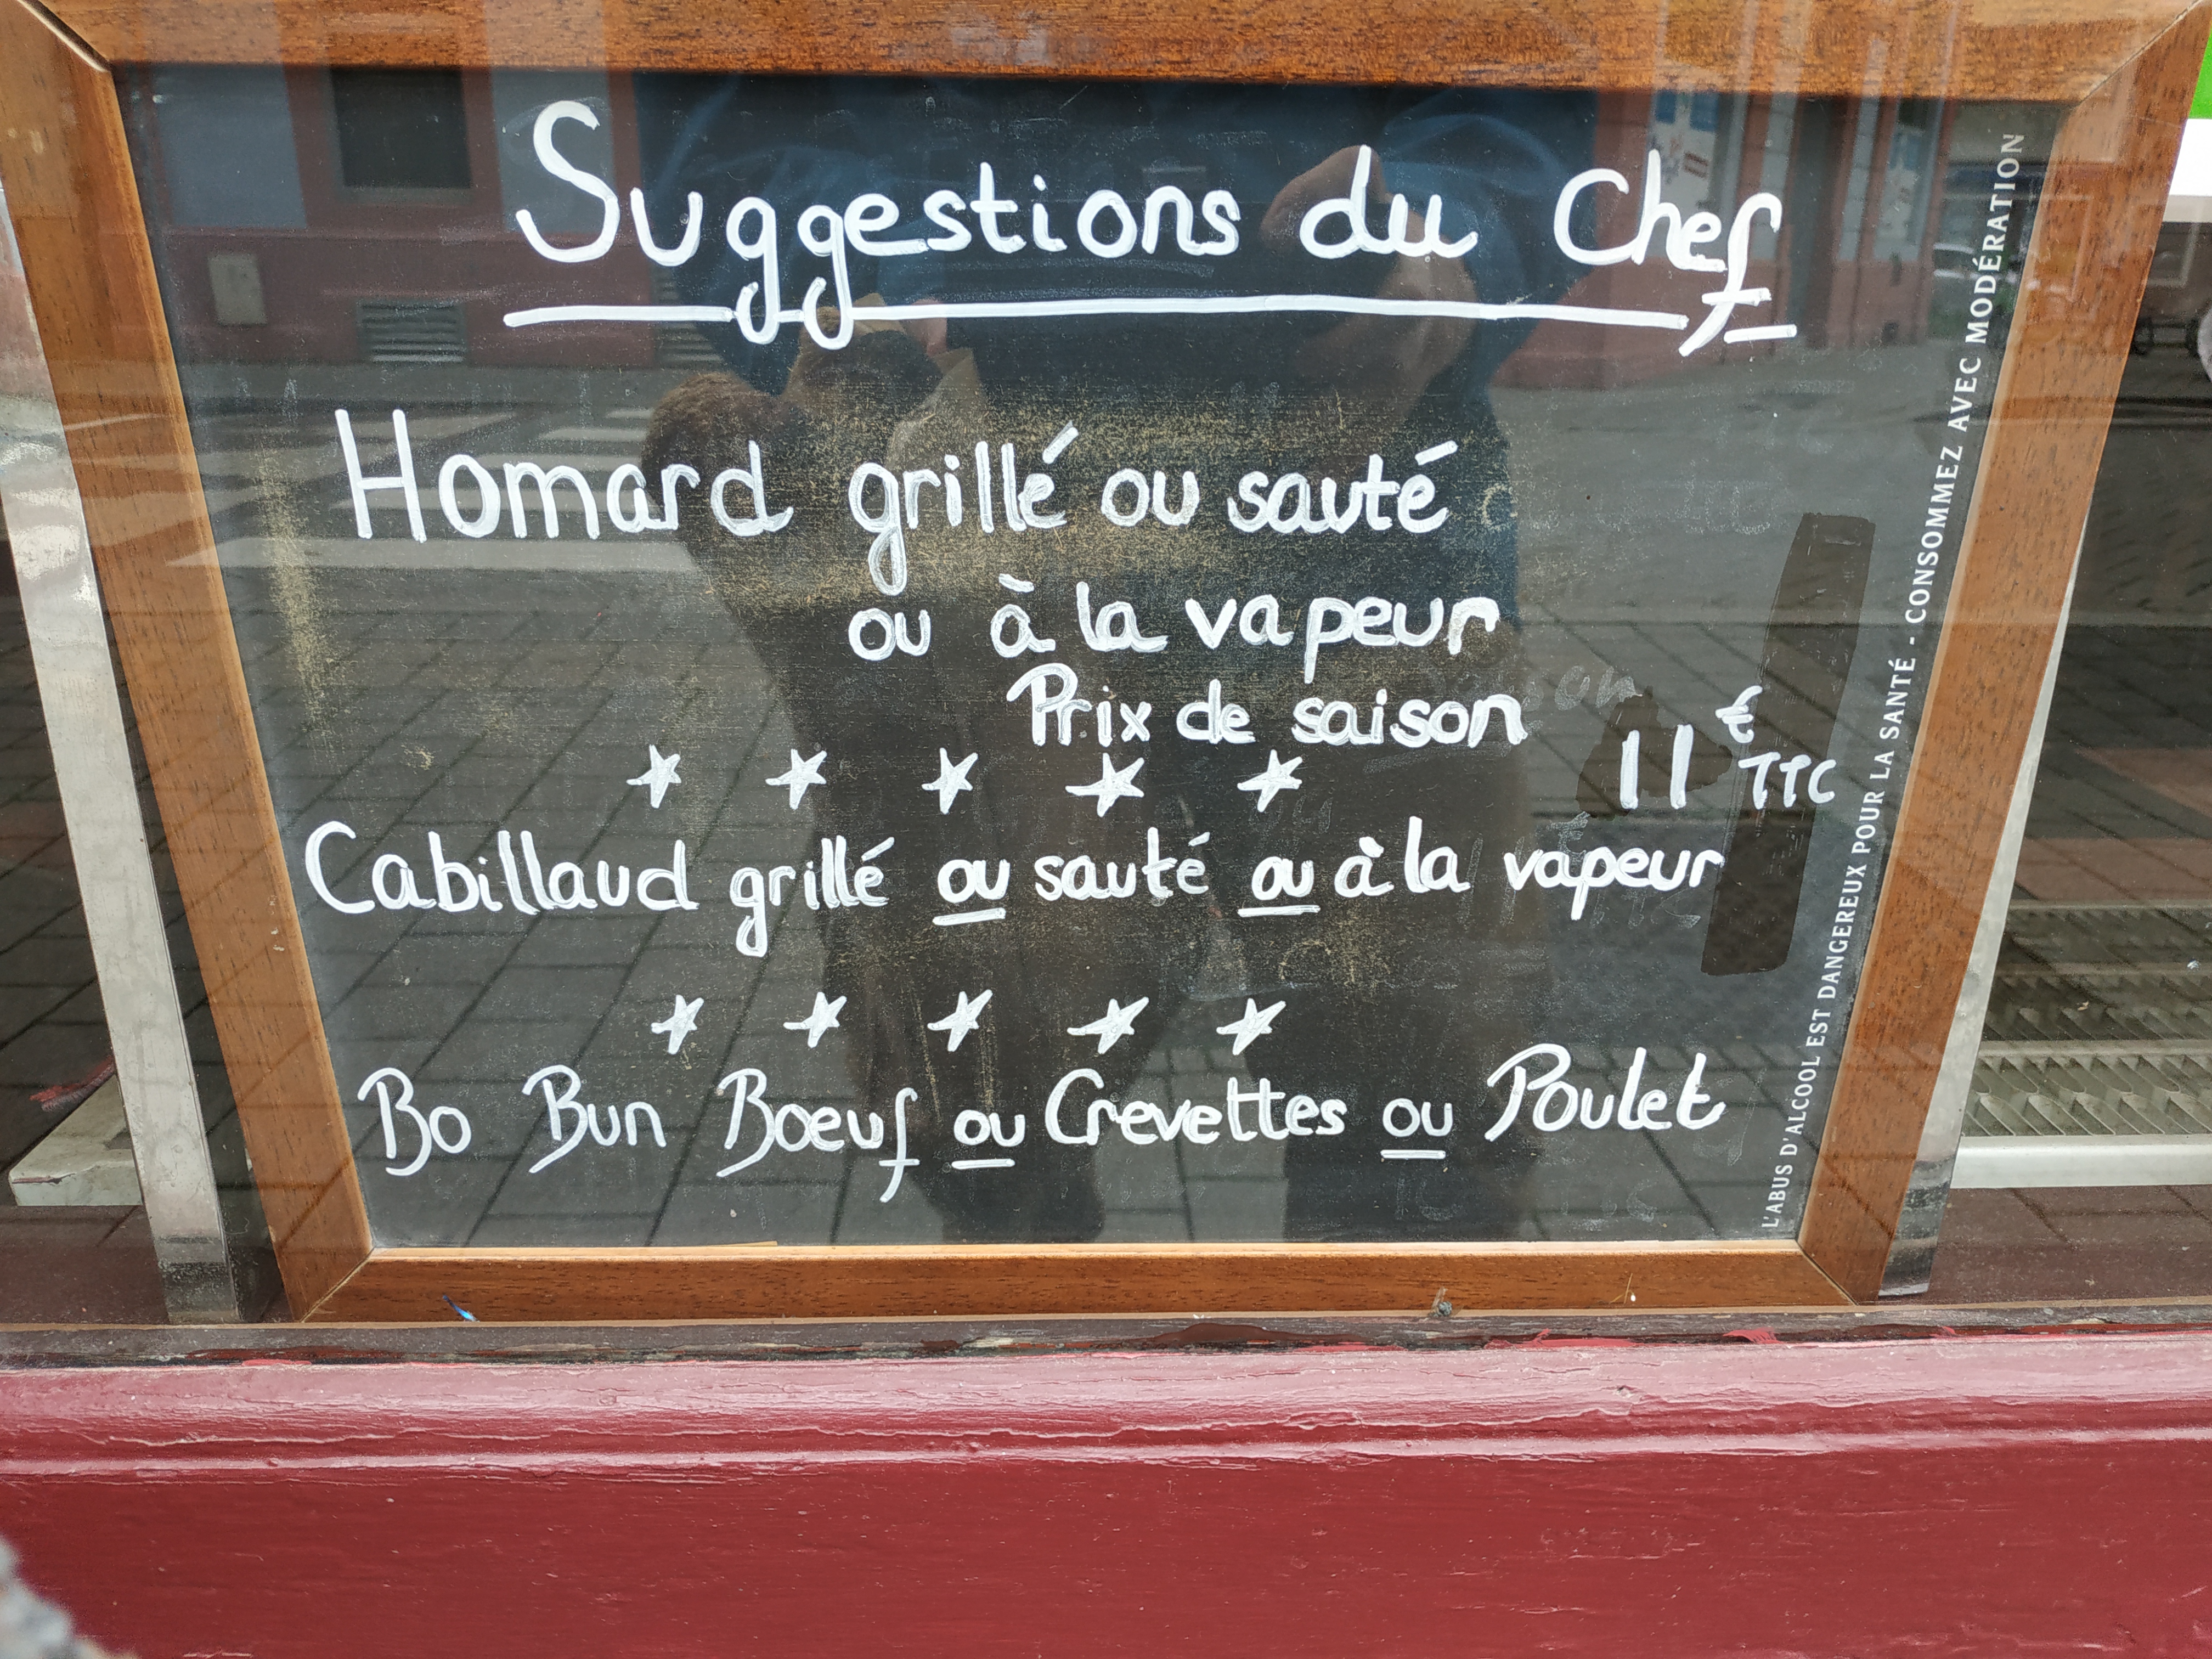 Suggestions du Chef
Homard grillé ou sauté
ou à la vapeur
Prix de saison
11 € TTC
Cabillaud grillé ou sauté ou à la vapeur
Bo Bun Boeuf ou Crevettes ou Poulet
L'ABUS D'ALCOOL EST DANGEREUX POUR LA SANTÉ - CONSOMMEZ AVEC MODÉRATION